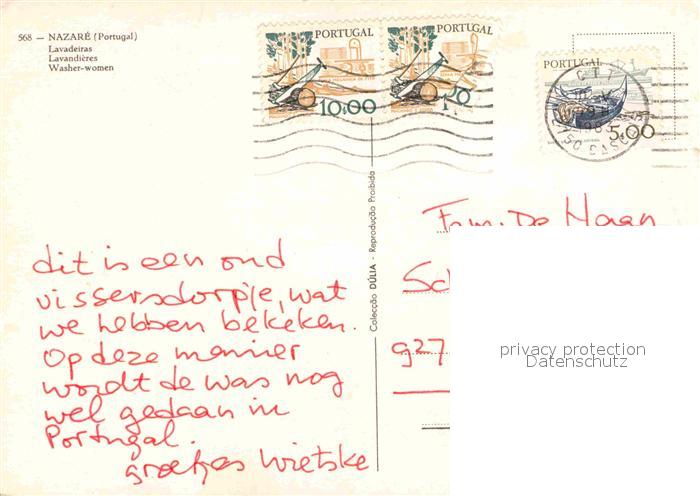 568 — NAZARÉ (Portugal)
Lavadeiras
Lavandières
Washer-women
PORTUGAL
10.00
PORTUGAL
PORTUGAL
5.00
CTT
CASCAIS
Colecção DÚLIA - Reprodução Proibida
Fam. De Haan
927
privacy protection
Datenschutz
dit is een oud
vissersdorpje, wat
we hebben bekeken.
Op deze manier
wordt de was nog
wel gedaan in
Portugal.
groetjes Wietske